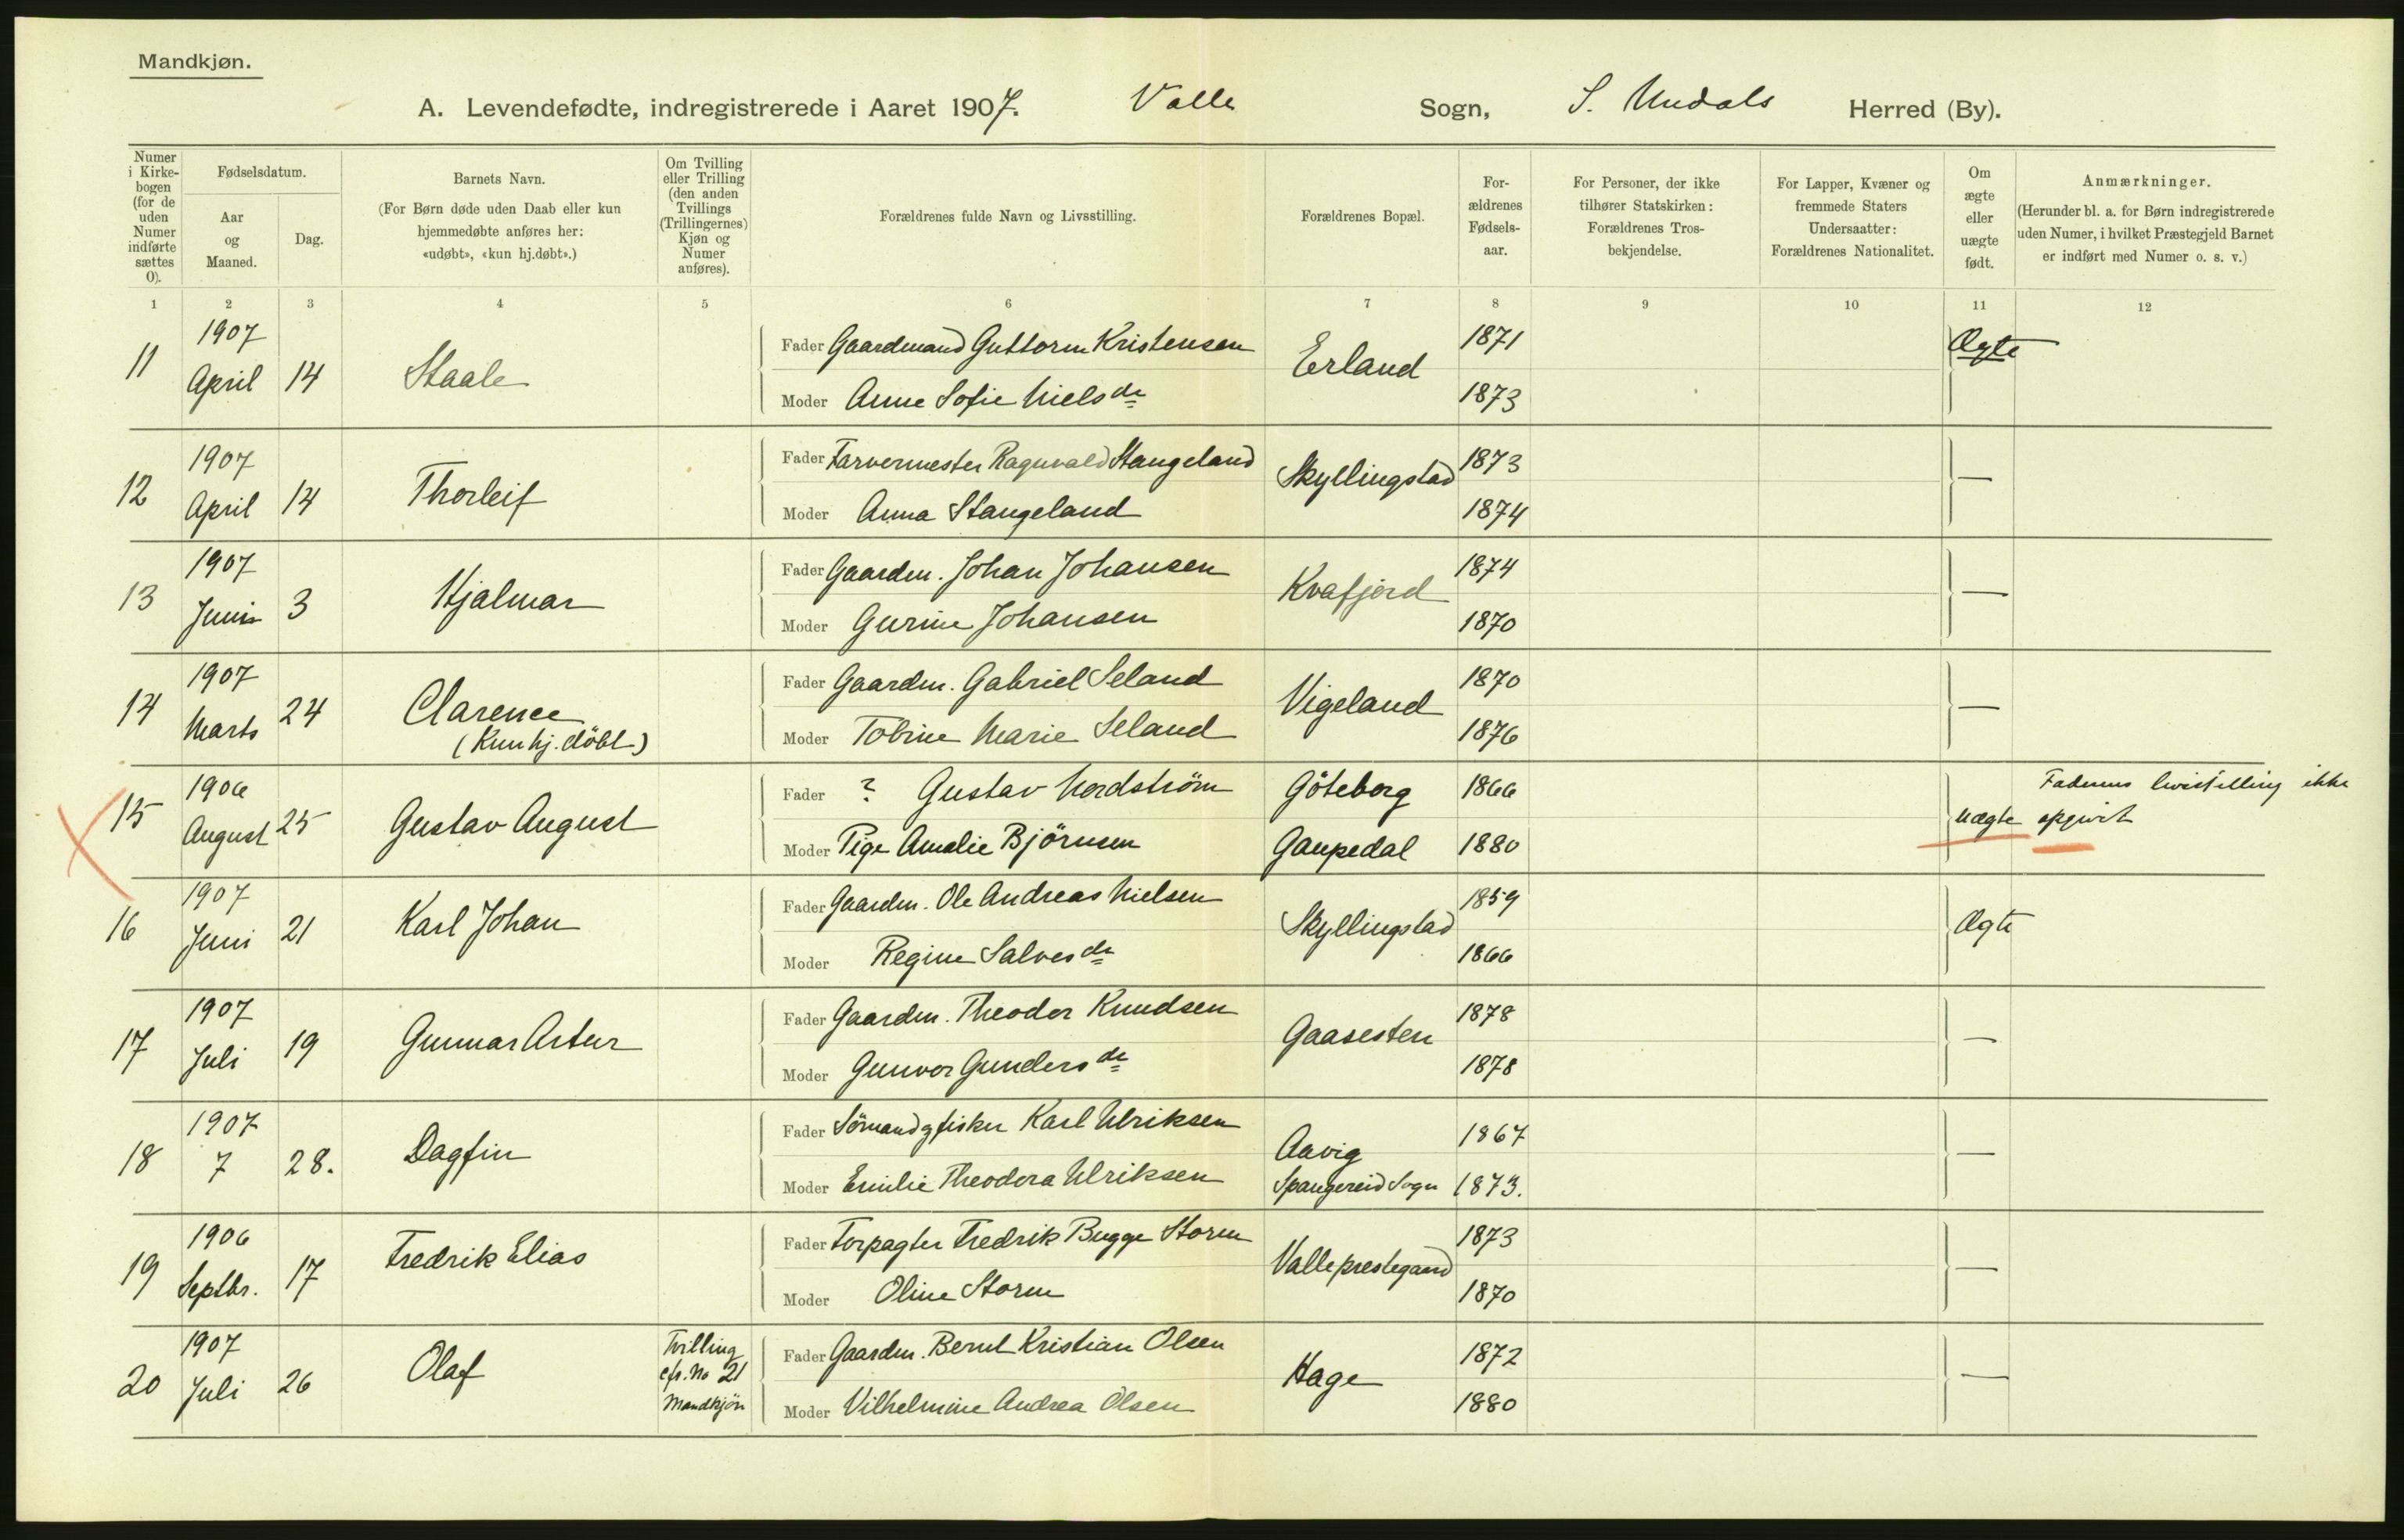 Mandkjøn.
A. Levendefødte, indregistrerede i Aaret 1907. Valle Sogn, S. Undals Herred (By).
Numer i Kirkebogen (for de uden Numer indførte sættes 0).
Fødselsdatum.
Aar og Maaned.
Dag.
Barnets Navn.
(For Børn døde uden Daab eller kun hjemmedøbte anføres her: «udøbt», «kun hj.døbt».)
Om Tvilling eller Trilling (den anden Tvillings (Trillingernes) Kjøn og Numer anføres).
Forældrenes fulde Navn og Livsstilling.
Forældrenes Bopæl.
Forældrenes Fødselsaar.
For Personer, der ikke tilhører Statskirken: Forældrenes Trosbekjendelse.
For Lapper, Kvæner og fremmede Staters Undersaatter: Forældrenes Nationalitet.
Om ægte eller uægte født.
Anmærkninger.
(Herunder bl. a. for Børn indregistrerede uden Numer, i hvilket Præstegjeld Barnet er indført med Numer o. s. v.)
1 2 3 4 5 6 7 8 9 10 11 12
11 1907 April 14 Staale
Fader Gaardmand Guttorm Kristensen Erland 1871 Ægte
Moder Anne Sofie Nielsdr 1873
12 1907 April 14 Thorleif
Fader Farvermester Ragnvald Stangeland Skyllingstad 1873 —
Moder Anna Stangeland 1874
13 1907 Juni 3 Hjalmar
Fader Gaardm. Johan Johansen Kvafjord 1874 —
Moder Gurine Johansen 1870
14 1907 Marts 24 Clarence
(Kun hj. döbt)
Fader Gaardm. Gabriel Seland Vigeland 1870 —
Moder Tobine Marie Seland 1876
15 1906 August 25 Gustav August
Fader ? Gustav Nordström Göteborg 1866 Uægte Faderens livsstilling ikke
Moder Pige Amalie Björnsen Gaupedal 1880 opgivet
16 1907 Juni 21 Karl Johan
Fader Gaardm. Ole Andreas Nielsen Skyllingstad 1859 Ægte
Moder Regine Salvesdr 1866
17 1907 Juli 19 Gunnar Artur
Fader Gaardm. Theodor Knudsen Gaasesten 1878 —
Moder Gunvor Gundersdr 1878
18 1907 7 28. Dagfin
Fader Sömand g fisker Karl Ulriksen Aavig 1867 —
Moder Emilie Theodora Ulriksen Spangereid Sogn 1873.
19 1906 Septbr. 17 Fredrik Elias
Fader Forpagter Fredrik Bugge Storm Valle prestegaard 1873 —
Moder Oline Storm 1870
20 1907 Juli 26 Olaf Tvilling cfr. No 21 Mandkjön
Fader Gaardm. Bernt Kristian Olsen Hage 1872 —
Moder Vilhelmine Andrea Olsen 1880